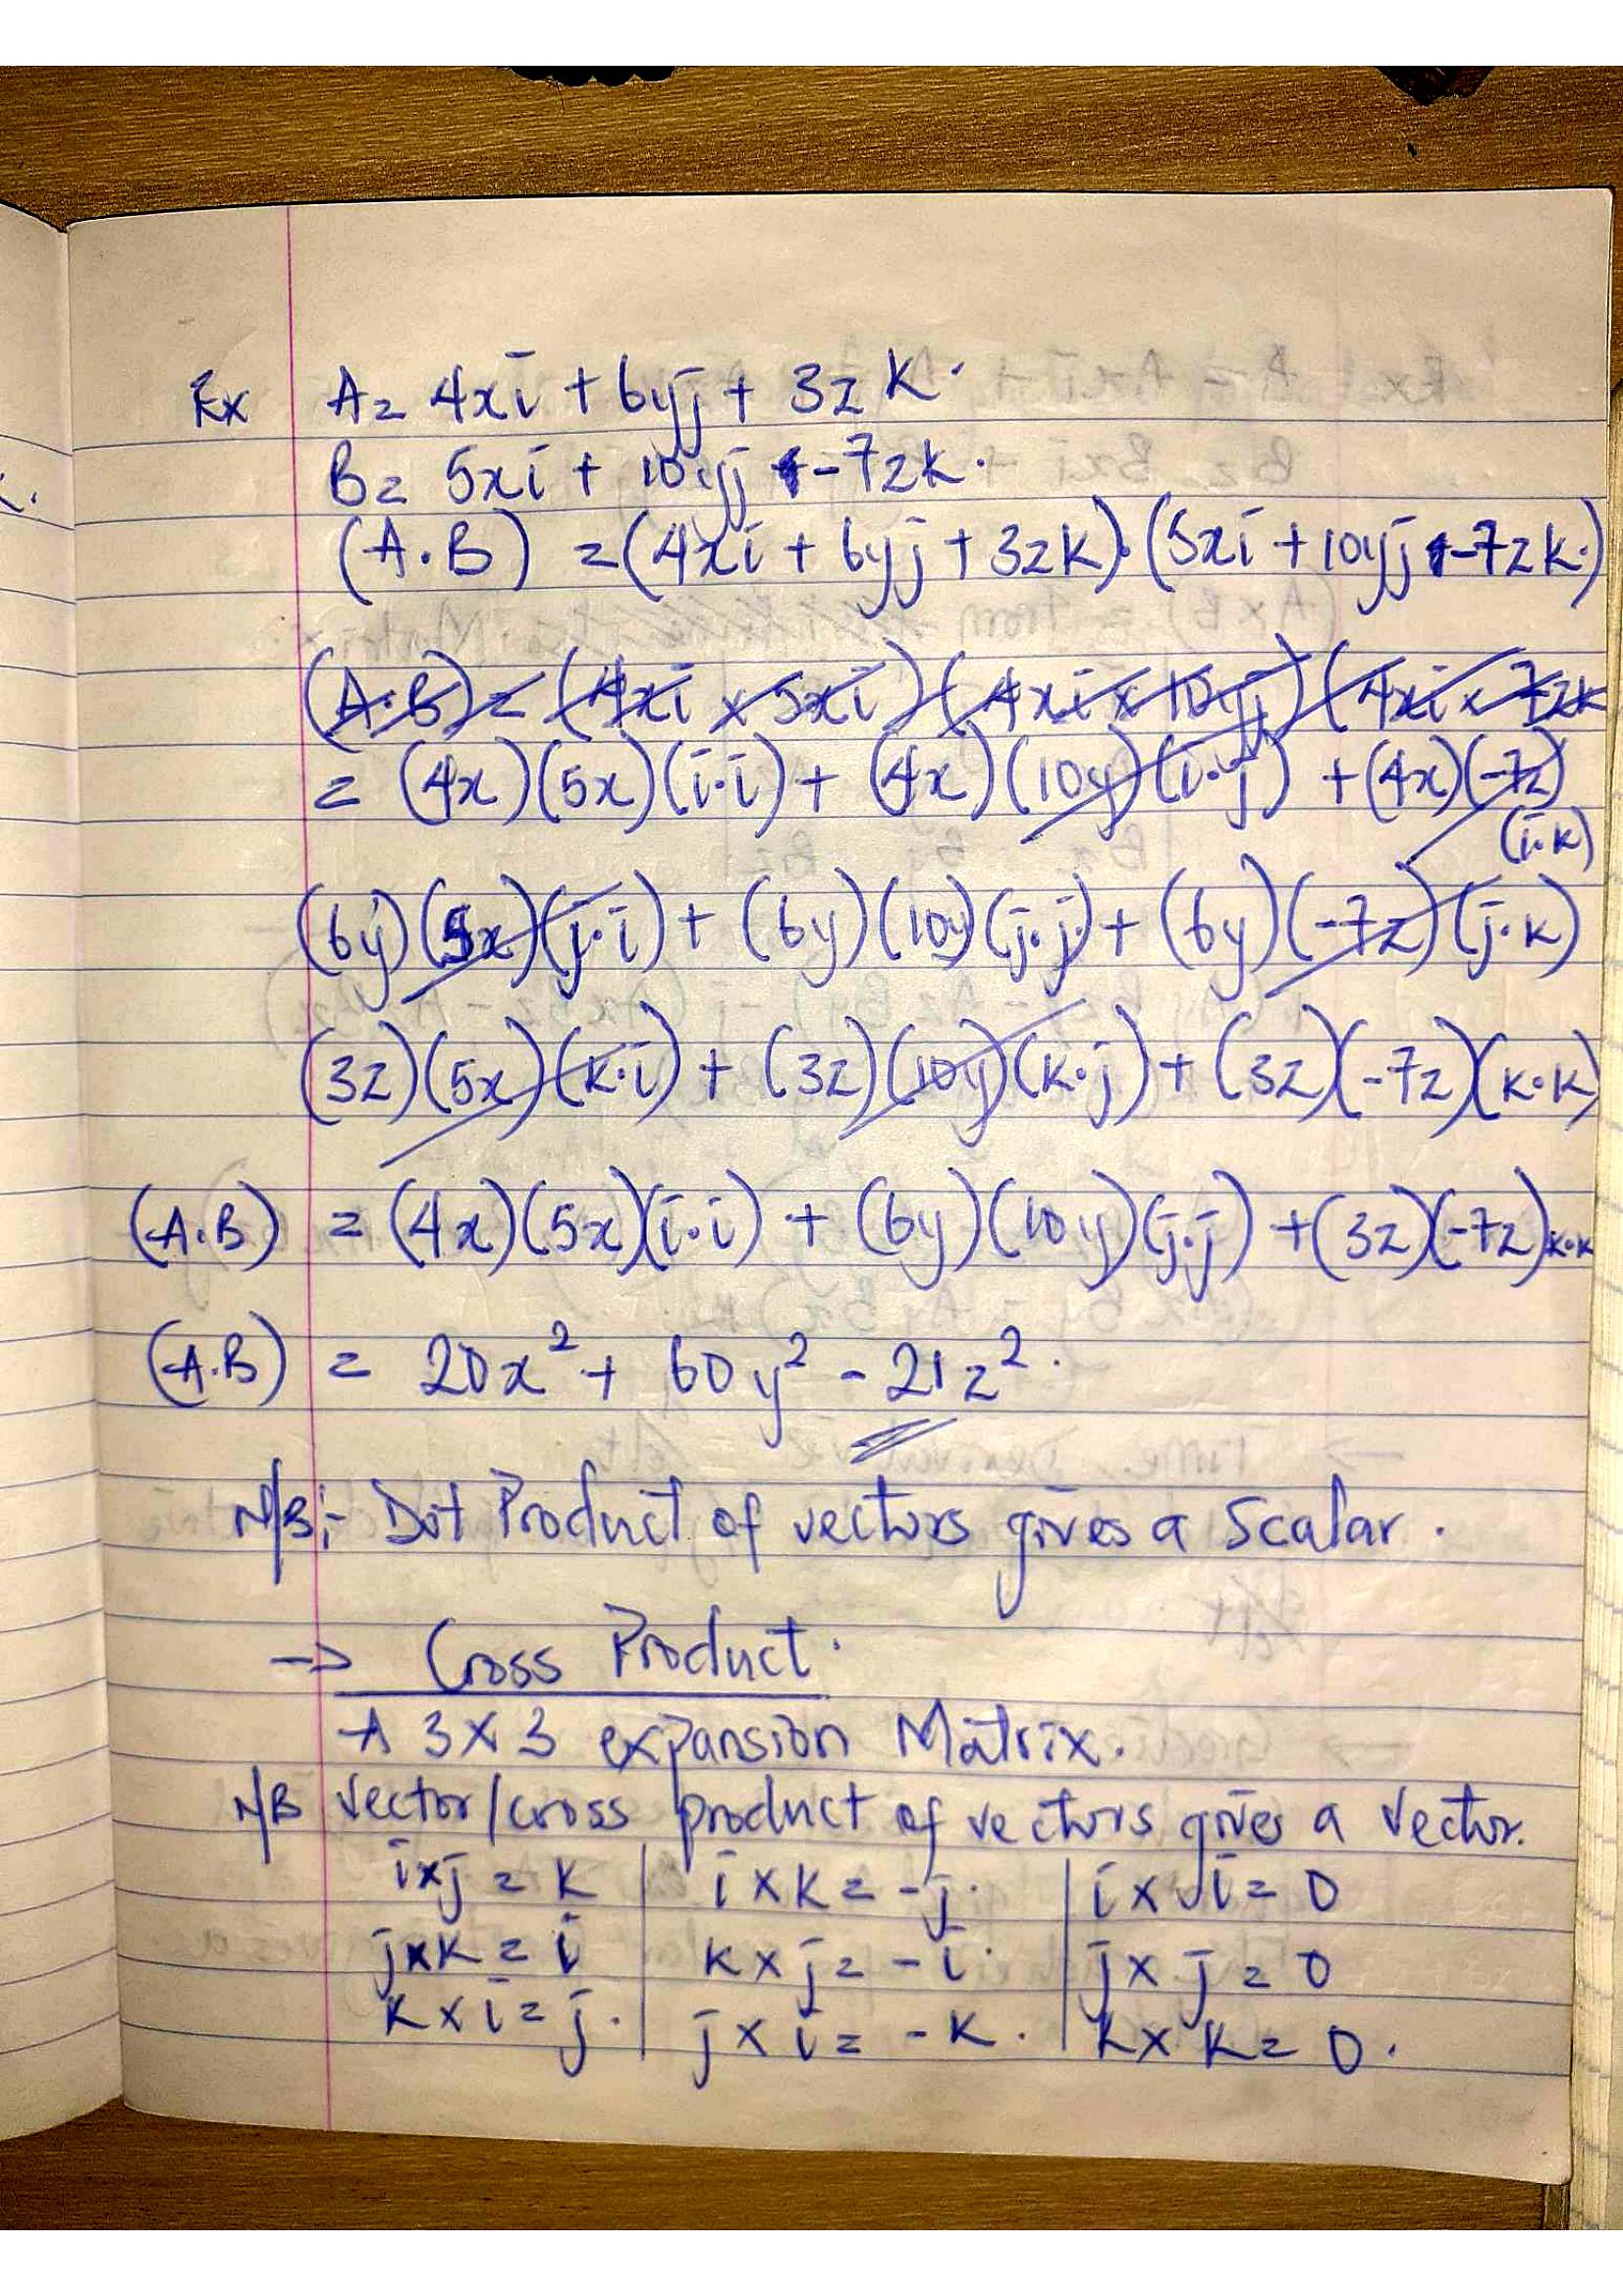 Ex A = 4xi + 6yj + 3zk.
B = 5xi + 10yj - 7zk.
(A.B) = (4xi + 6yj + 3zk).(5xi + 10yj - 7zk.)
(A.B) = (4xi x 5xi) (4xi x 10yj) (4xi x -7zk
= (4x)(5x)(i.i) + (4x)(10y)(i.j) + (4x)(-7z)
(i.k)
(6y)(5x)(j.i) + (6y)(10y)(j.j) + (6y)(-7z)(j.k)
(3z)(5x)(k.i) + (3z)(10y)(k.j) + (3z)(-7z)(k.k)
(A.B) = (4x)(5x)(i.i) + (6y)(10y)(j.j) + (3z)(-7z)k.k
(A.B) = 20x² + 60y² - 21z².
N/B:- Dot Product of vectors gives a Scalar.
→ Cross Product.
A 3x3 expansion Matrix.
N/B vector/cross product of vectors gives a vector.
ixj = k | i x k = -j. | i x i = 0
jxk = i | k x j = -i. | j x j = 0
k x i = j. | j x i = -k. | k x k = 0.